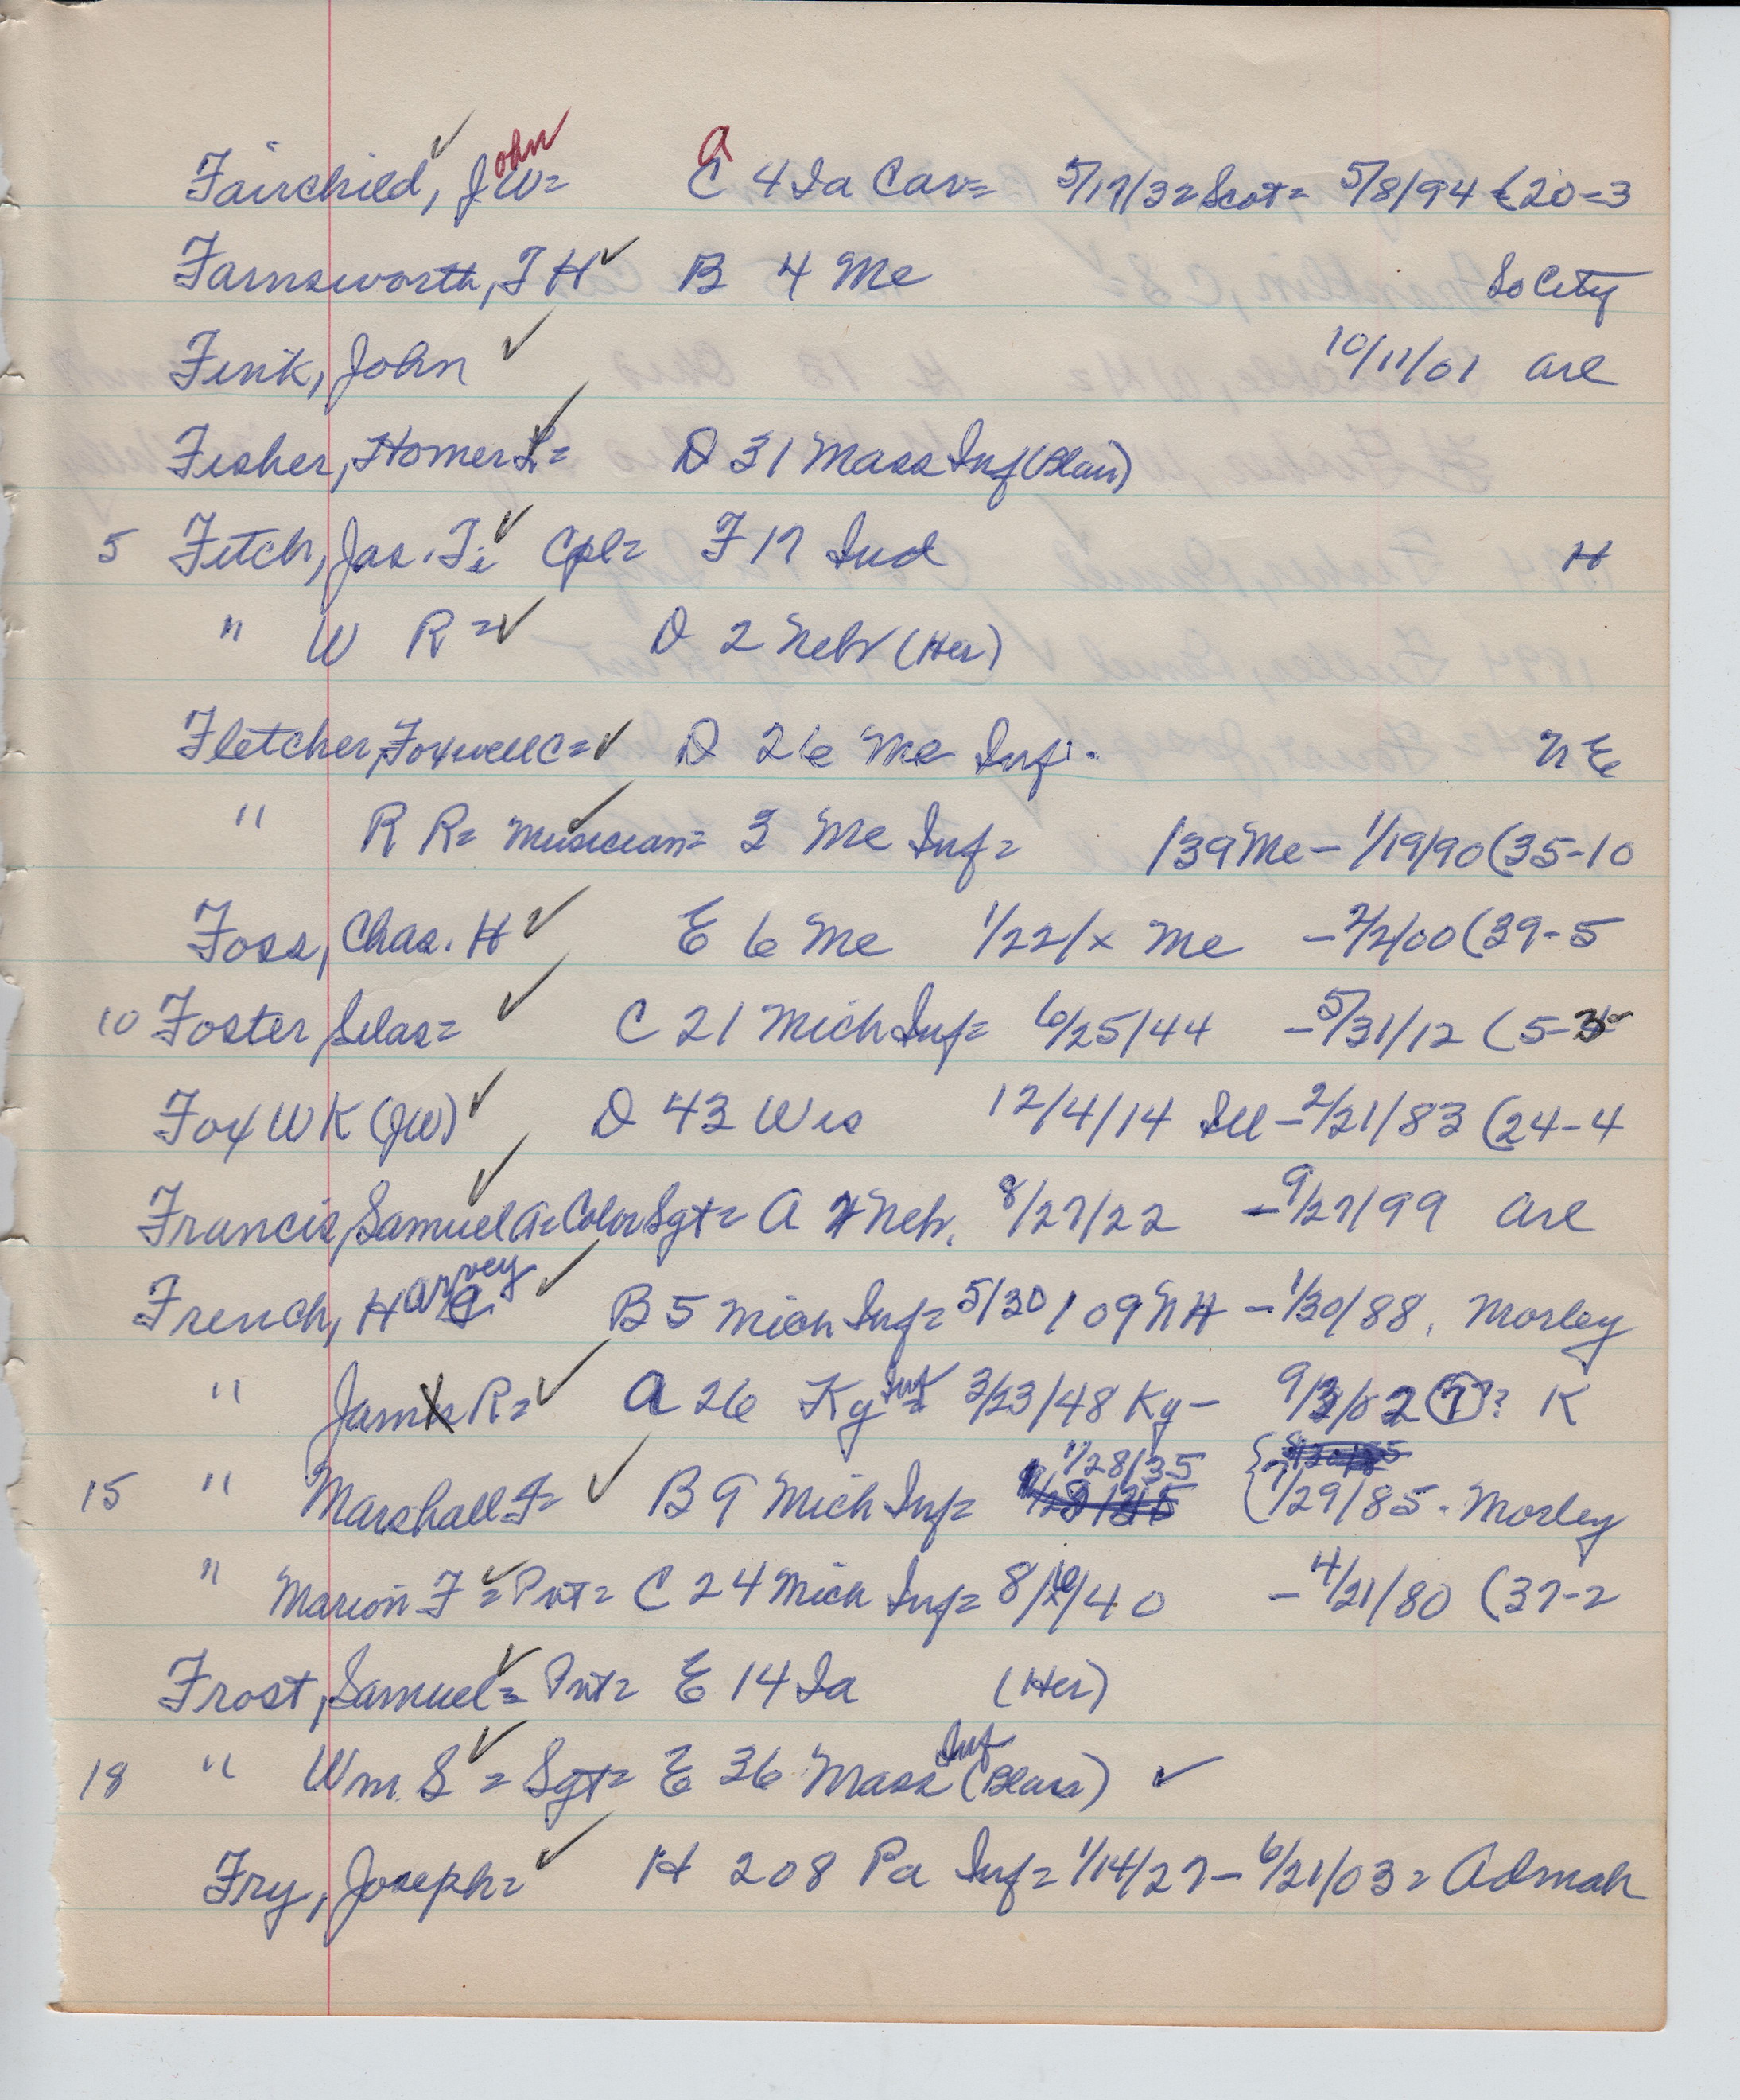 Fairchild, John W= C a 4 Ia Cav= 5/17/32 Scot= 5/8/94 (20=3
Farnsworth, F H B 4 Me So City
Fink, John 10/11/01 Arl
Fisher, Homer L= D 31 Mass Inf (Blair)
5 Fitch, Jas. T. Cpl= F 17 Ind H
" W R = D 2 Nebr (Her)
Fletcher, Foxwell C= D 26 Me Inf. N E
" R R= Musician= 3 Me Inf= /39 Me - 1/19/90 (35-10
Foss, Chas. H E 6 Me 1/22/x Me - 2/2/00 (39-5
10 Foster, Silas= C 21 Mich Inf= 6/25/44 - 5/31/12 (5-3
Fox W K (JW) D 43 Wis 12/4/14 Ill - 2/21/83 (24-4
Francis, Samuel A= Color Sgt= A Nebr. 8/27/22 - 9/27/99 Arl
French, Harvey B 5 Mich Inf= 5/30/09 NH - 1/30/88. Morley
" Jam R= A 26 Ky Inf= 3/23/48 Ky - 9/3/02 (7)? K
15 " Marshall F= B 9 Mich Inf= 1/28/35 1/29/85. Morley
" Marion F = Pvt= C 24 Mich Inf= 8/16/40 - 4/21/80 (37-2
Frost, Samuel= Pvt= E 14 Ia (Her)
18 " Wm. S = Sgt= E 36 Mass Inf (Blair)
Fry, Joseph= H 208 Pa Inf= 1/14/27 - 6/21/03= Admah